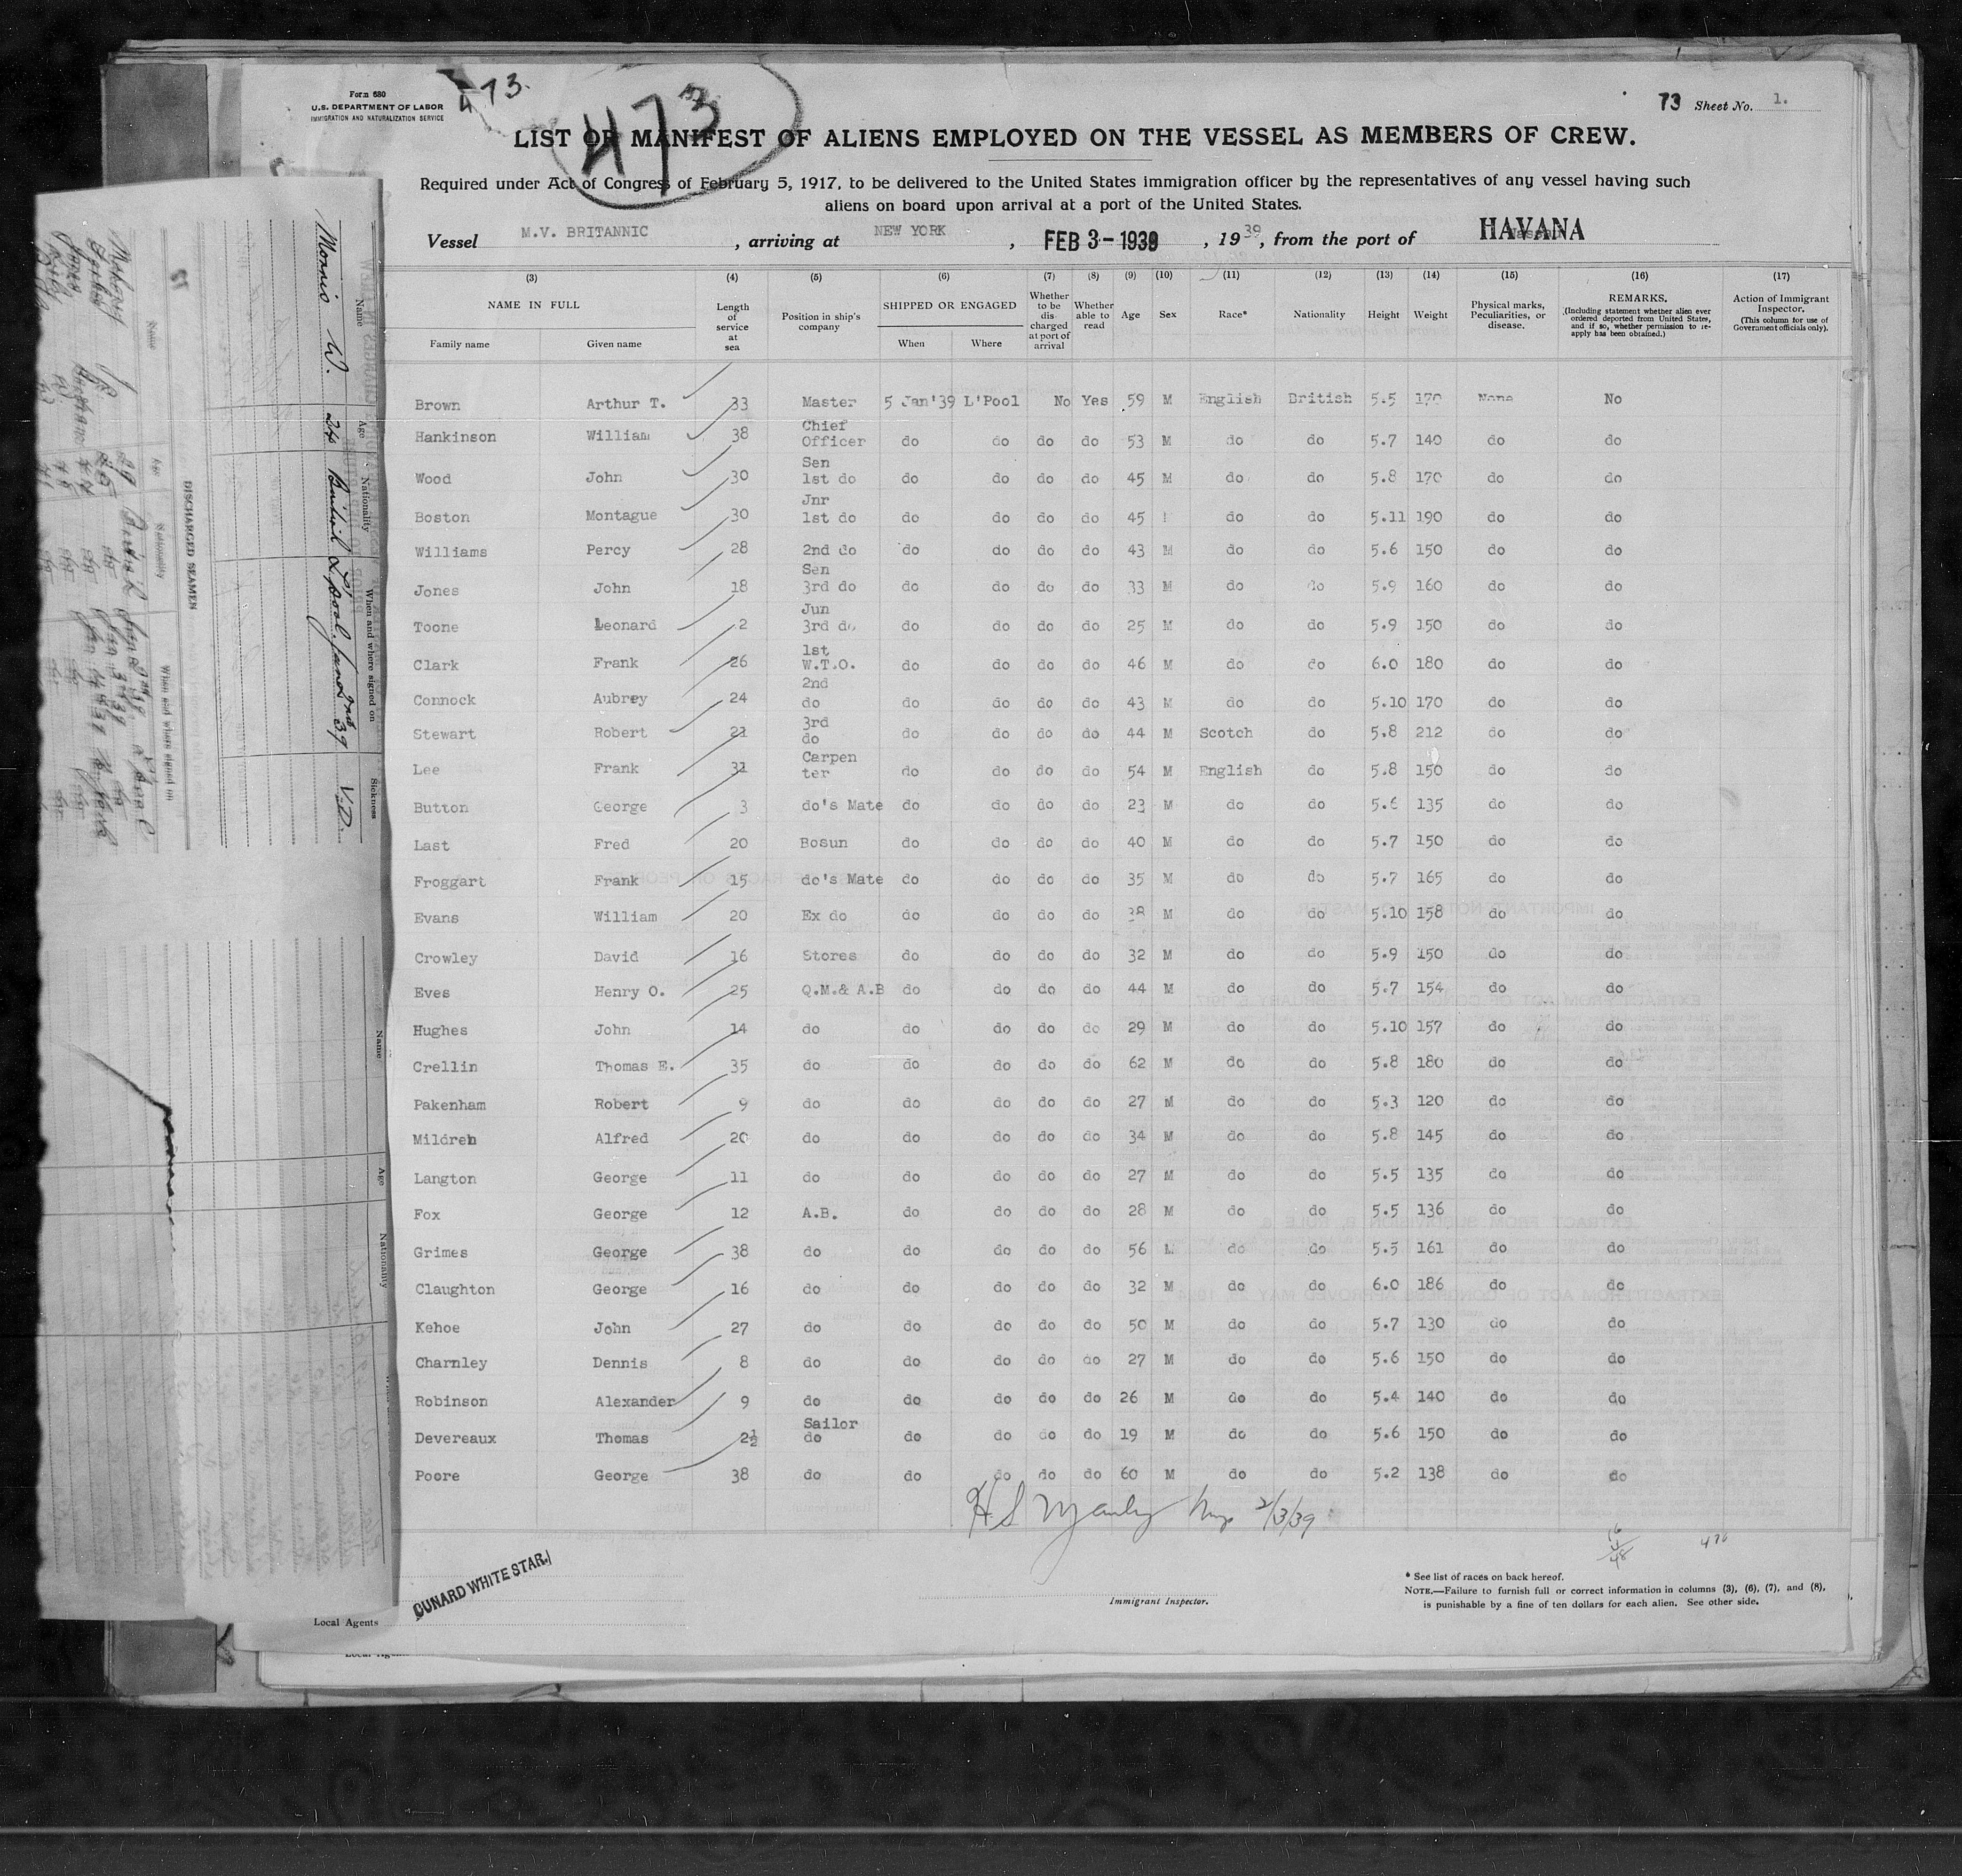 Form 680
U.S. DEPARTMENT OF LABOR
IMMIGRATION AND NATURALIZATION SERVICE
473.
473
73 Sheet No. 1.
LIST OR MANIFEST OF ALIENS EMPLOYED ON THE VESSEL AS MEMBERS OF CREW.
Required under Act of Congress of February 5, 1917, to be delivered to the United States immigration officer by the representatives of any vessel having such
aliens on board upon arrival at a port of the United States.
Vessel M.V. BRITANNIC, arriving at NEW YORK, FEB 3-1939, 1939, from the port of HAVANA
(3) (4) (5) (6) (7) (8) (9) (10) (11) (12) (13) (14) (15) (16) (17)
NAME IN FULL
Family name Given name
Length of service at sea
Position in ship's company
SHIPPED OR ENGAGED
When Where
Whether to be discharged at port of arrival
Whether able to read
Age Sex Race* Nationality Height Weight
Physical marks, Peculiarities, or disease.
REMARKS.
(Including statement whether alien ever ordered deported from United States, and if so, whether permission to reapply has been obtained.)
Action of Immigrant Inspector.
(This column for use of Government officials only).
Brown Arthur T. 33 Master 5 Jan'39 L'Pool No Yes 59 M English British 5.5 170 None No
Hankinson William 38 Chief Officer do do do do 53 M do do 5.7 140 do do
Wood John 30 Sen 1st do do do do do 45 M do do 5.8 170 do do
Boston Montague 30 Jnr 1st do do do do do 45 do do 5.11 190 do do
Williams Percy 28 2nd do do do do do 43 M do do 5.6 150 do do
Jones John 18 Sen 3rd do do do do do 33 M do do 5.9 160 do do
Toone Leonard 2 Jun 3rd do do do do do 25 M do do 5.9 150 do do
Clark Frank 26 1st W.T.O. do do do do 46 M do do 6.0 180 do do
Connock Aubrey 24 2nd do do do do do 43 M do do 5.10 170 do do
Stewart Robert 21 3rd do do do do do 44 M Scotch do 5.8 212 do do
Lee Frank 31 Carpen ter do do do do 54 M English do 5.8 150 do do
Button George 3 do's Mate do do do do 23 M do do 5.6 135 do do
Last Fred 20 Bosun do do do do 40 M do do 5.7 150 do do
Froggart Frank 15 do's Mate do do do do 35 M do do 5.7 165 do do
Evans William 20 Ex do do do do do 38 M do do 5.10 158 do do
Crowley David 16 Stores do do do do 32 M do do 5.9 150 do do
Eves Henry O. 25 Q.M.& A.B do do do do 44 M do do 5.7 154 do do
Hughes John 14 do do do do do 29 M do do 5.10 157 do do
Crellin Thomas E. 35 do do do do do 62 M do do 5.8 180 do do
Pakenham Robert 9 do do do do do 27 M do do 5.3 120 do do
Mildren Alfred 20 do do do do do 34 M do do 5.8 145 do do
Langton George 11 do do do do do 27 M do do 5.5 135 do do
Fox George 12 A.B. do do do do 28 M do do 5.5 136 do do
Grimes George 38 do do do do do 56 M do do 5.5 161 do do
Claughton George 16 do do do do do 32 M do do 6.0 186 do do
Kehoe John 27 do do do do do 50 M do do 5.7 130 do do
Charnley Dennis 8 do do do do do 27 M do do 5.6 150 do do
Robinson Alexander 9 do do do do do 26 M do do 5.4 140 do do
Devereaux Thomas 2½ Sailor do do do do do 19 M do do 5.6 150 do do
Poore George 38 do do do do do 60 M do do 5.2 138 do do
2/3/39
CUNARD WHITE STAR.
Local Agents
Immigrant Inspector.
* See list of races on back hereof.
NOTE.—Failure to furnish full or correct information in columns (3), (6), (7), and (8),
is punishable by a fine of ten dollars for each alien. See other side.
Name Age Nationality When and where signed on Sickness
Morris W. 24 British L'pool. Jan 2nd 39 V.D.
DISCHARGED SEAMEN
Name Age Nationality When and where signed on
Name Age Nationality